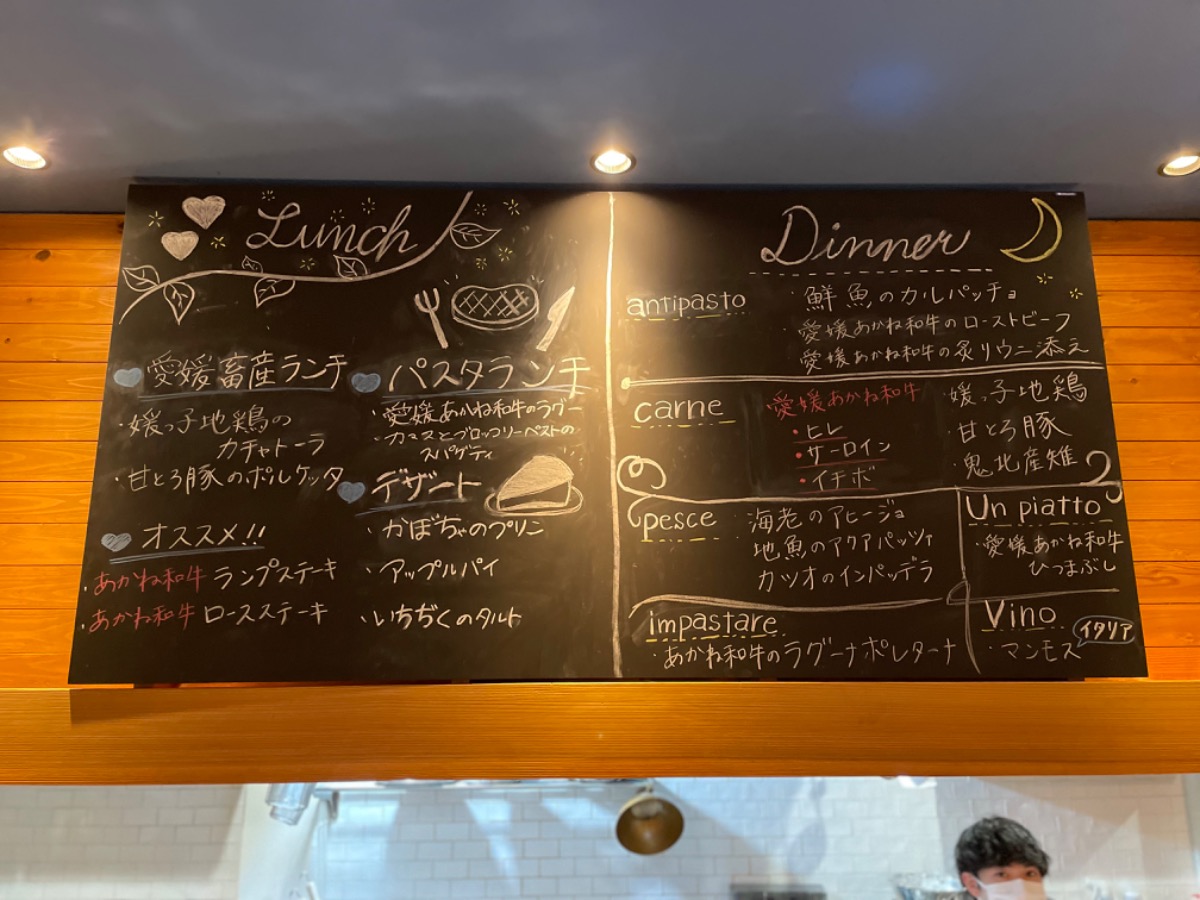 Lunch
愛媛畜産ランチ
・媛っ子地鶏の
カチャトーラ
・甘とろ豚のポルケッタ
オススメ!!
・あかね和牛 ランプステーキ
・あかね和牛 ロースステーキ
パスタランチ
・愛媛あかね和牛のラグー
・カマスとブロッコリーペストの
スパゲティ
デザート
・かぼちゃのプリン
・アップルパイ
・いちぢくのタルト
Dinner
antipasto
・鮮魚のカルパッチョ
・愛媛あかね和牛のローストビーフ
・愛媛あかね和牛の炙りウニ添え
carne
愛媛あかね和牛
・ヒレ
・サーロイン
・イチボ
・媛っ子地鶏
・甘とろ豚
・鬼北産雉
pesce
海老のアヒージョ
地魚のアクアパッツァ
カツオのインパッデラ
Un piatto
・愛媛あかね和牛
ひつまぶし
impastare
・あかね和牛のラグーナポレターナ
Vino
イタリア
・マンモス